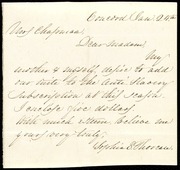 Concord Jan. 24th
Mrs Chapman
Dear Madam,
My
mother & myself, desire to add
our mite to the Anti Slavery
Subscription at this season
I enclose five dollars
with much esteem believe me
yours very truly,
Sophia E Thoreau